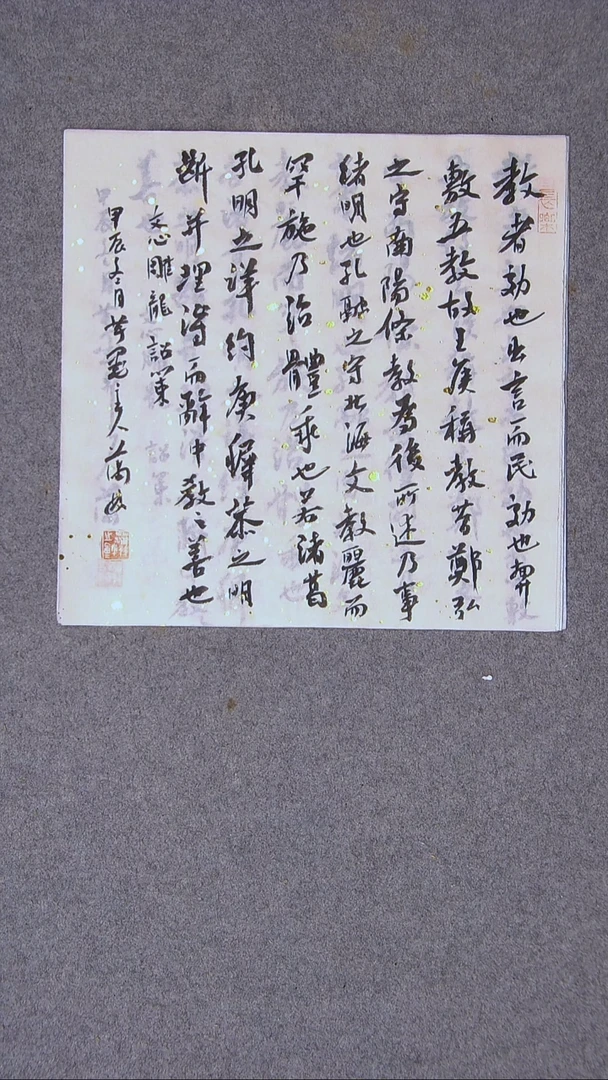 教者効也出言而民効也契
敷五教故王侯稱教昔鄭弘
之守南陽條教為後所述乃事
緒明也孔融之守北海文教麗而
罕施乃治體乖也若諸葛
孔明之詳約庾稺恭之明
斷并理得而辭中教之善也
文心雕龍詔策
甲辰冬月
主人